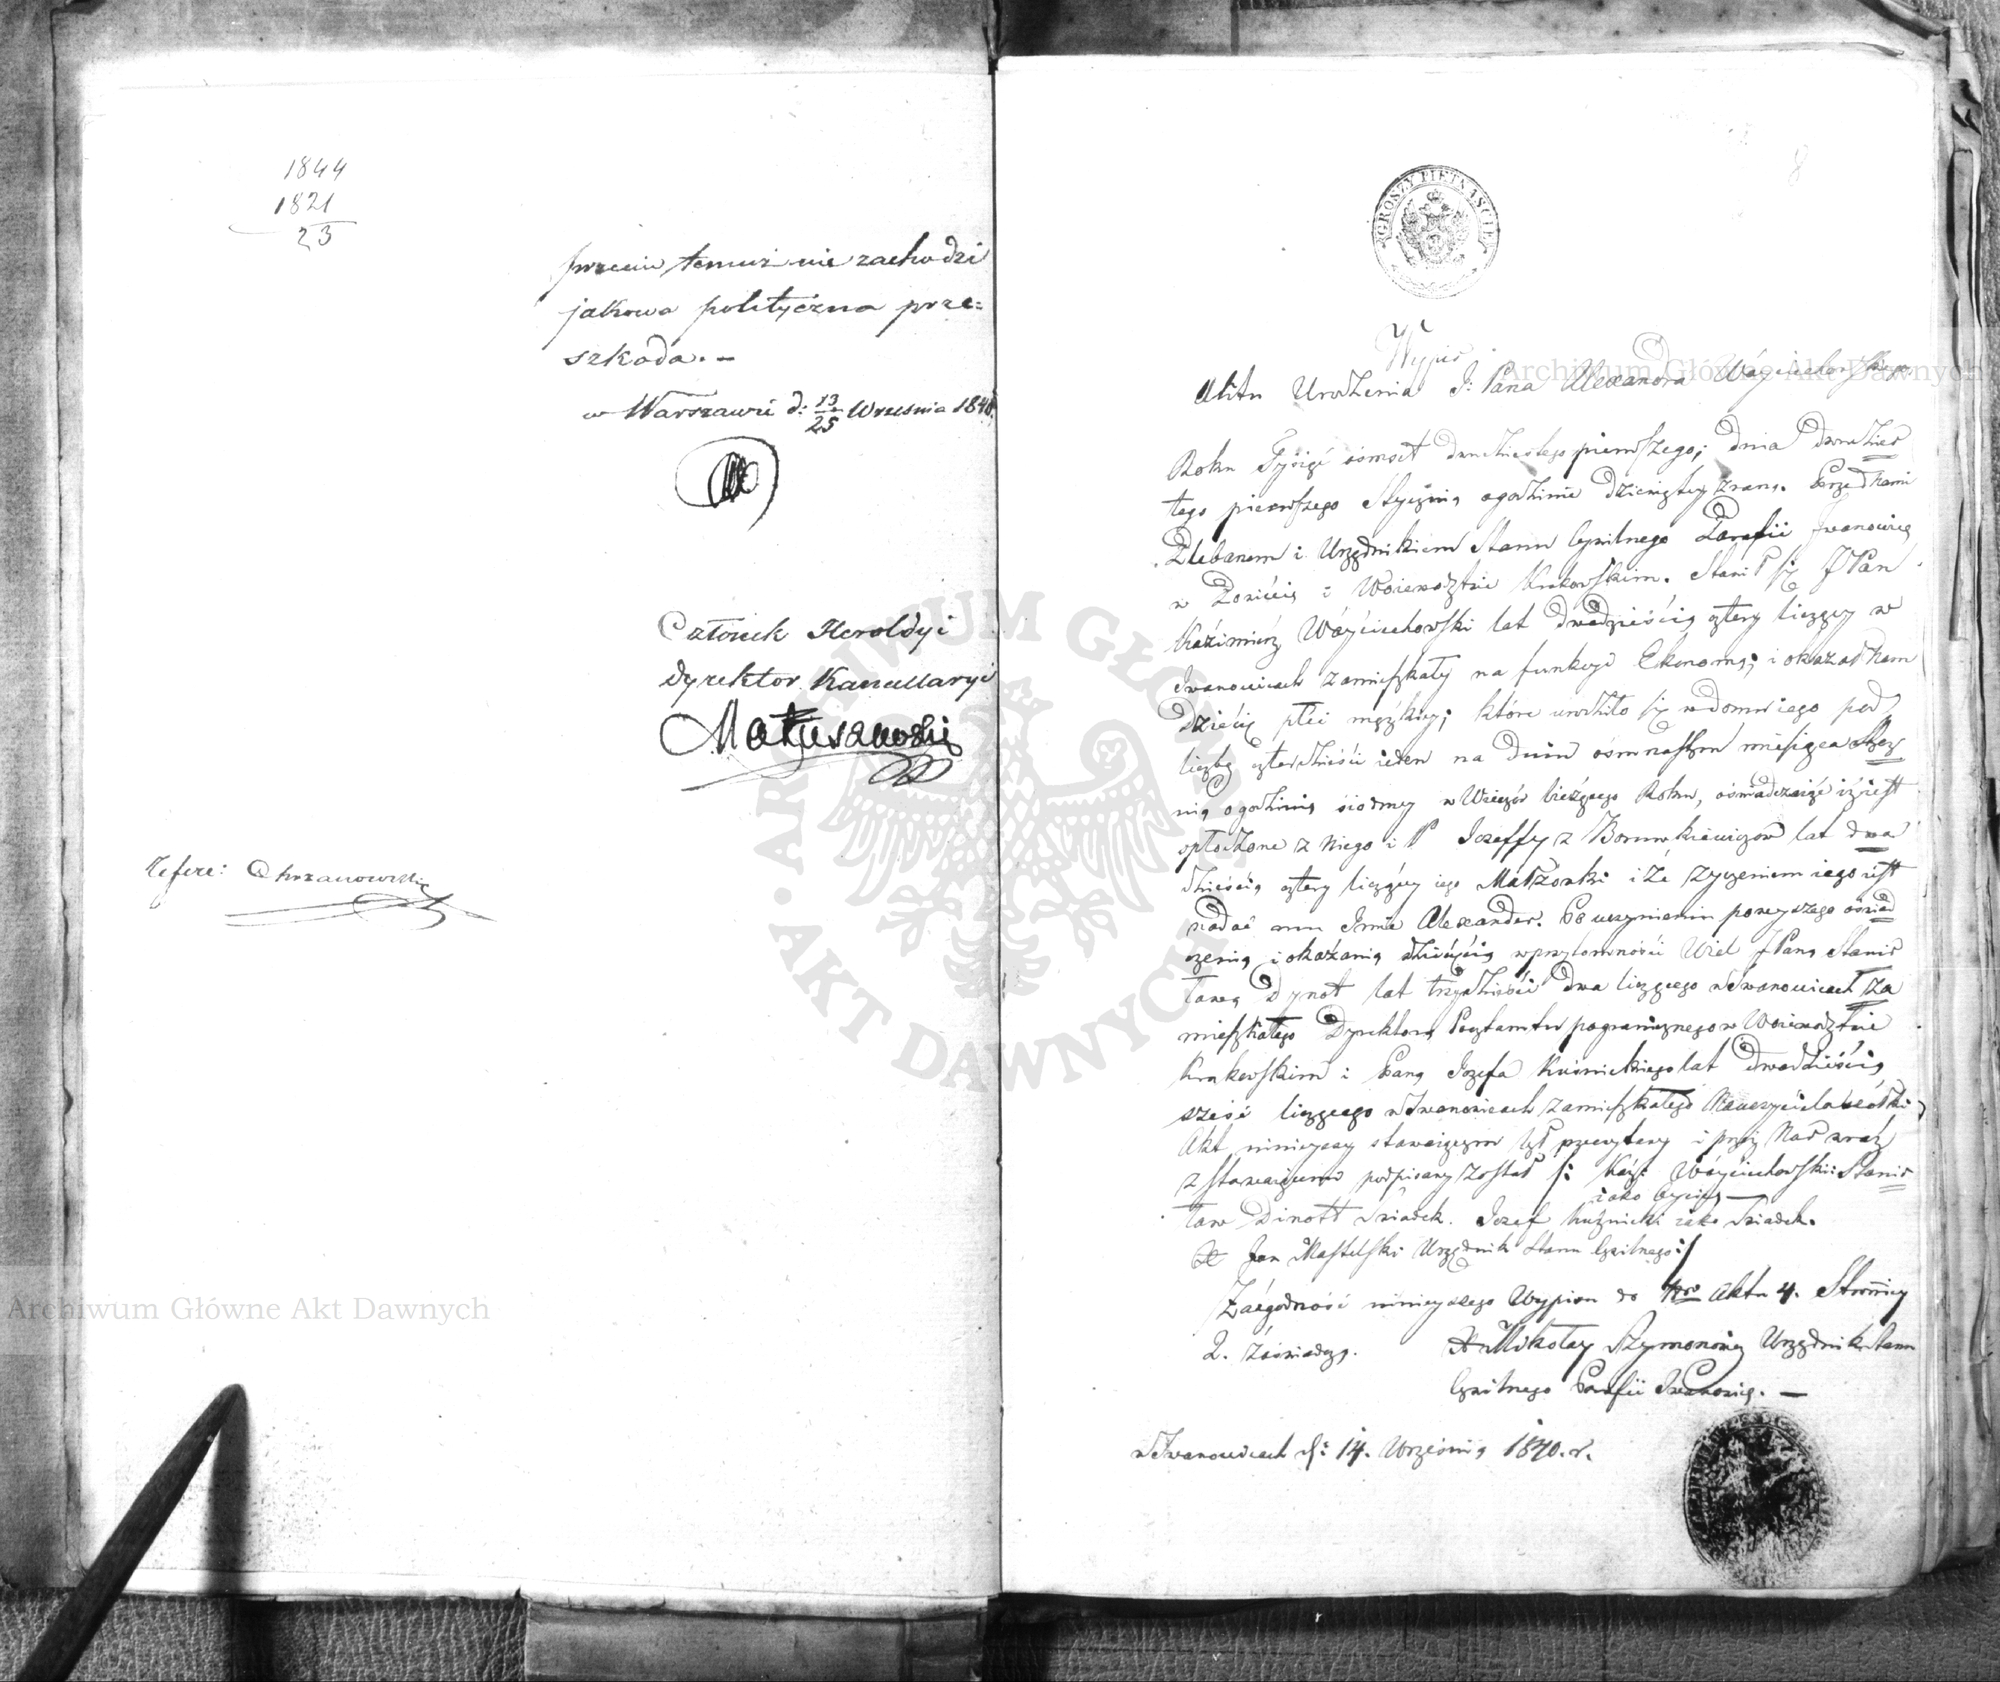 1844
1821
23
przeciw temuż nie zachodzi
jakowa polityczna prze=
szkoda. —
w Warszawie d: 13/25 Września 1840
Członek Heroldyi
Dyrektor Kancellaryi
Matuszewski
Refere: Chrzanowski
8
GROSZY PIETNAŚCIE
Wypis
Aktu Urodzenia J: Pana Alexandra Wóyciechowskiego
Roku Tysiąć ośmset dwudziestego pierwszego; dnia dwudzies
tego pierwszego Stycznia o godzinie dziewiątey zrana. Przed Nami
Plebanem i Urzędnikiem Stanu Cywilnego Parafii Iwanowice
w Powiecie i Woiewodztwie Krakowskim. Stawił się JPan
Kaźimierz Wóyciechowski lat dwadzieścia cztery liczący w
Iwanowicach zamieszkały na funkcyi Ekonoma; i okazał Nam
dziecię płci męzkiey; które urodziło się w domu iego pod
liczbą czterdzieści ieden na dniu ośmnastym miesiąca Stycz
nia o godzinie siodmey w Wieczór bieżącego Roku, oświadczaiąć iż iest
spłodzone z Niego i Jozeffy z Borowkiewiczow lat dwa
dzieścia cztery liczącey iego Małżonki i że życzeniem iego iest
nadać mu Imie Alexander. Po uczynieniu powyższego oświad
czenia i okazania dziecięcia w przytomności Wiel JPana Stanis
ława Dynot lat trzydzieści dwa liczącego w Iwanowicach za
mieszkałego Dyrektora Pocztamtu pogranicznego w Woiewodztwie
Krakowskim i Pana Jozefa Kuśnickiego lat dwadzieścia
sześć liczącego w Iwanowicach zamieszkałego Nauczyciela
Akt ninieyszy stawaiącym był przeczytany i przez Nas wraz
z Stawaiącemi podpisany został /: Kaz: Wóyciechowski: Stanis
iako Oyciec —
ław Dinott Swiadek. Jozef Kuźnicki iako Swiadek.
X Jan Mastelski Urzędnik Stanu Cywilnego :/
Zazgodność ninieyszego Wypisu do Nro Aktu 4. Stronnicy
2. Zaświadcza. X Mikołay Szymonowicz Urzędnik Stanu
Cywilnego Parafii Iwanowice. —
w Iwanowicach d: 14. Września 1840. r.
Archiwum Główne Akt Dawnych
Archiwum Główne Akt Dawnych
ARCHIWUM GŁÓWNE • AKT DAWNYCH •